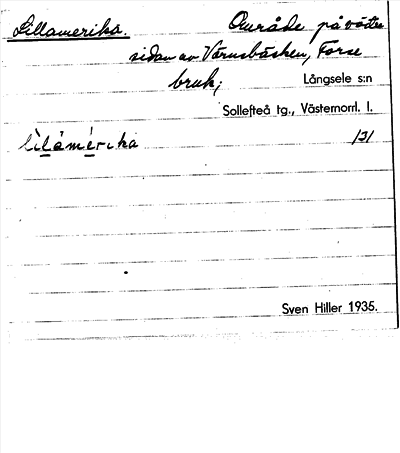 Lillamerika. Område på västra
sidan av Värnsbäcken, Forse
bruk; Långsele s:n
Sollefteå tg., Västernorrl. l.
lìlamérika 131
Sven Hiller 1935.